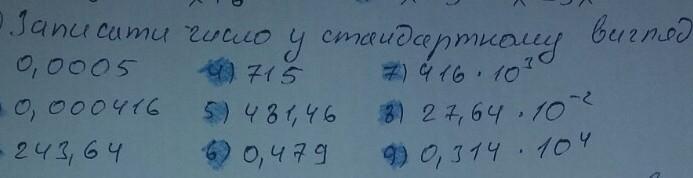 Записати число у стандартному вигляд
0,0005 4) 715 7) 416 · 10³
0,000416 5) 481,46 8) 27,64 · 10⁻²
243,64 6) 0,479 9) 0,314 · 10⁴